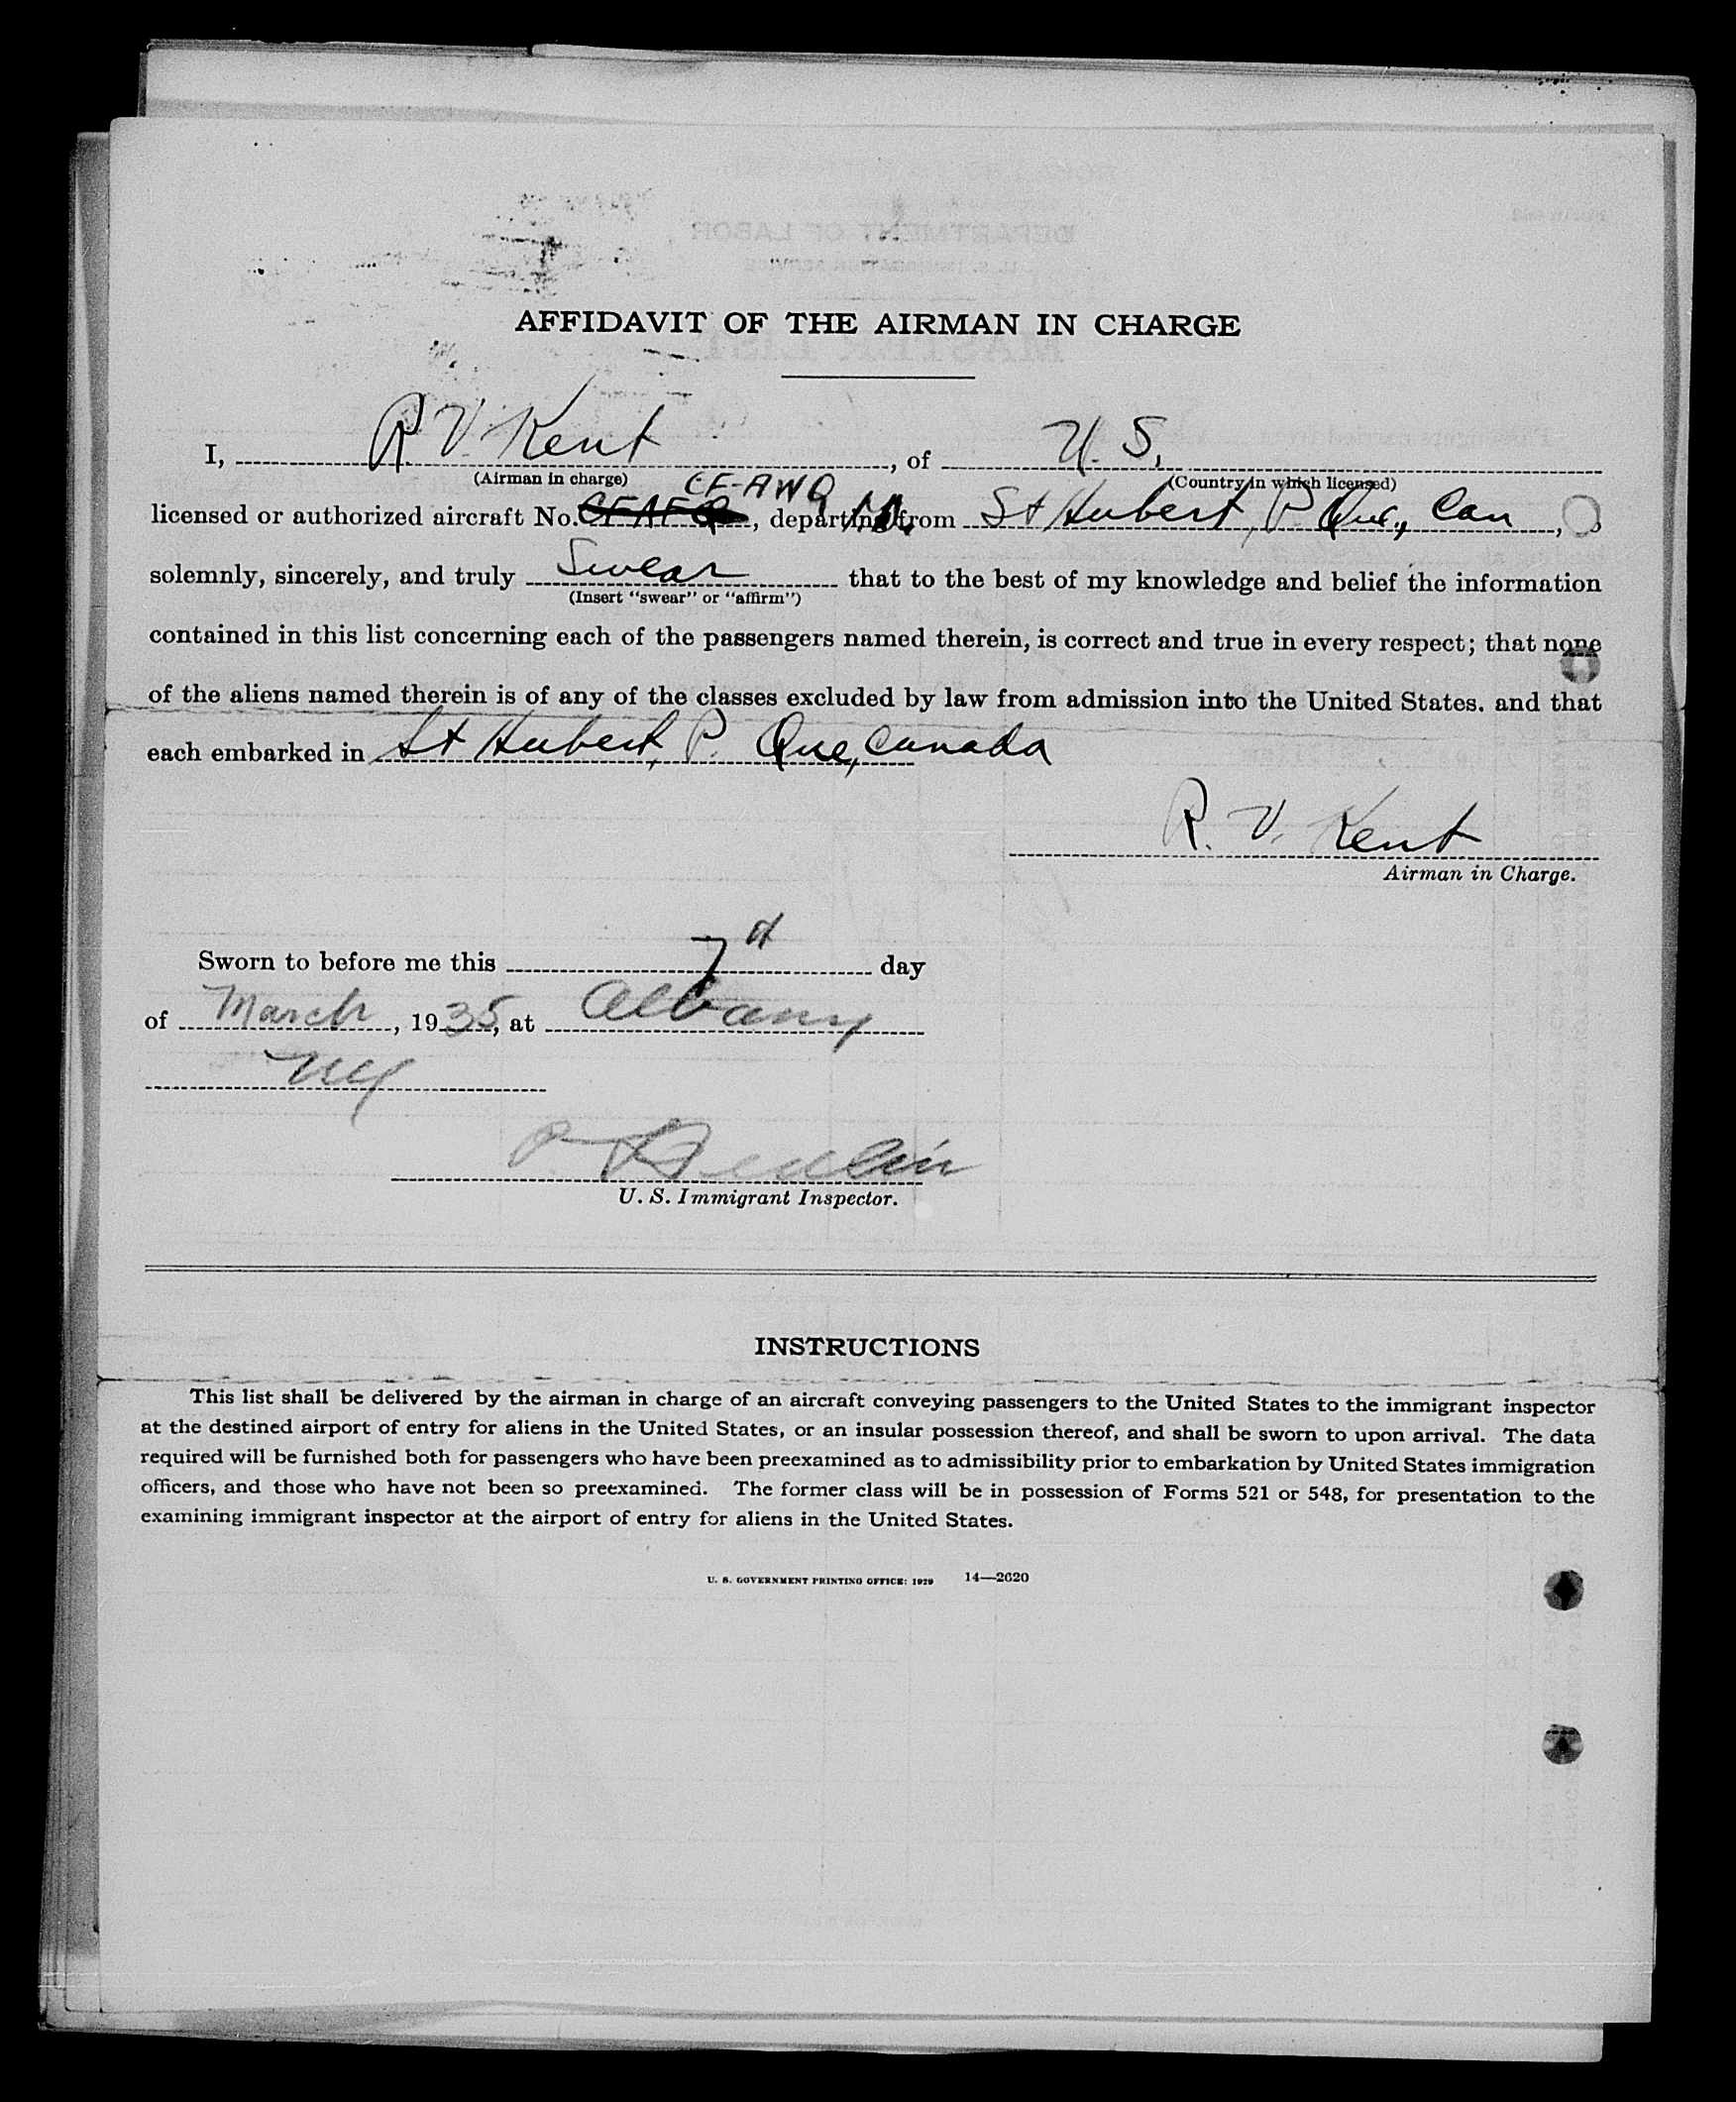 AFFIDAVIT OF THE AIRMAN IN CHARGE
I, R. V. Kent, of U. S.
(Airman in charge) (Country in which licensed)
CF-AWQ
licensed or authorized aircraft No. CF AF Q, departing from St Hubert, P. Que., Can,
solemnly, sincerely, and truly Swear that to the best of my knowledge and belief the information
(Insert "swear" or "affirm")
contained in this list concerning each of the passengers named therein, is correct and true in every respect; that none
of the aliens named therein is of any of the classes excluded by law from admission into the United States. and that
each embarked in St Hubert, P. Que, Canada
R. V. Kent
Airman in Charge.
Sworn to before me this 7 day
of March, 1935, at Albany
NY
U. S. Immigrant Inspector.
INSTRUCTIONS
This list shall be delivered by the airman in charge of an aircraft conveying passengers to the United States to the immigrant inspector
at the destined airport of entry for aliens in the United States, or an insular possession thereof, and shall be sworn to upon arrival. The data
required will be furnished both for passengers who have been preexamined as to admissibility prior to embarkation by United States immigration
officers, and those who have not been so preexamined. The former class will be in possession of Forms 521 or 548, for presentation to the
examining immigrant inspector at the airport of entry for aliens in the United States.
U. S. GOVERNMENT PRINTING OFFICE: 1929 14—2620